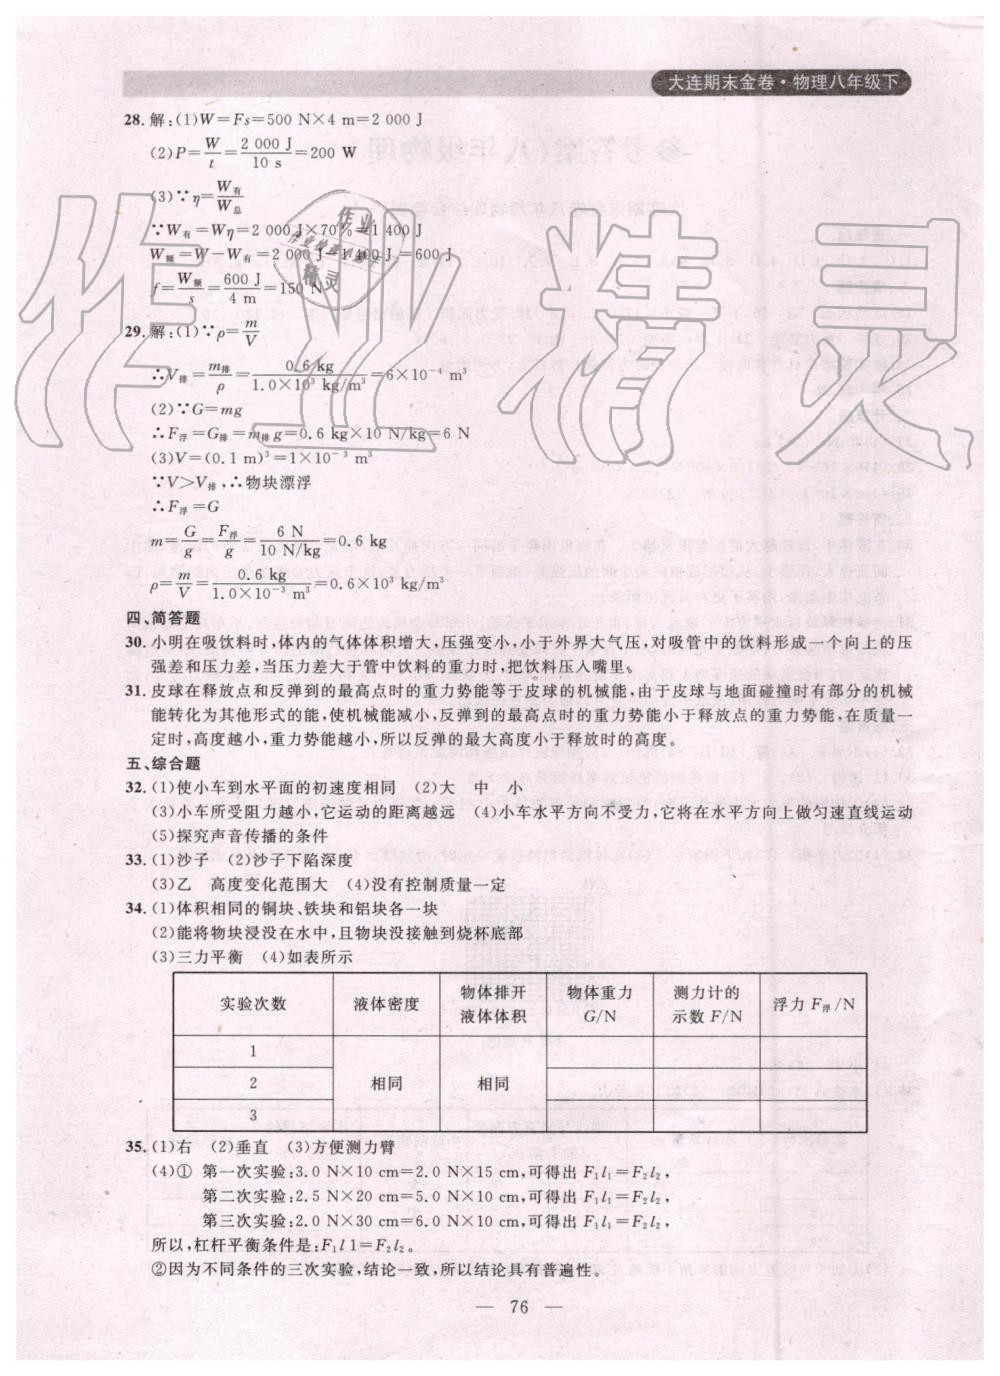 大连期末金卷·物理八年级下
28. 解:(1)W=Fs=500 N×4 m=2 000 J
(2)P=W/t=2 000 J/10 s=200 W
(3)∵η=W有/W总
∵W有=Wη=2 000 J×70%=1 400 J
W额=W-W有=2 000 J-1 400 J=600 J
f=W额/s=600 J/4 m=150 N
29. 解:(1)∵ρ=m/V
∴V排=m排/ρ=0.6 kg/1.0×10³ kg/m³=6×10⁻⁴ m³
(2)∵G=mg
∴F浮=G排=m排g=0.6 kg×10 N/kg=6 N
(3)V=(0.1 m)³=1×10⁻³ m³
∵V>V排,∴物块漂浮
∴F浮=G
m=G/g=F浮/g=6 N/10 N/kg=0.6 kg
ρ=m/V=0.6 kg/1.0×10⁻³ m³=0.6×10³ kg/m³
四、简答题
30. 小明在吸饮料时,体内的气体体积增大,压强变小,小于外界大气压,对吸管中的饮料形成一个向上的压
强差和压力差,当压力差大于管中饮料的重力时,把饮料压入嘴里。
31. 皮球在释放点和反弹到的最高点时的重力势能等于皮球的机械能,由于皮球与地面碰撞时有部分的机械
能转化为其他形式的能,使机械能减小,反弹到的最高点时的重力势能小于释放点的重力势能,在质量一
定时,高度越小,重力势能越小,所以反弹的最大高度小于释放时的高度。
五、综合题
32. (1)使小车到水平面的初速度相同 (2)大 中 小
(3)小车所受阻力越小,它运动的距离越远 (4)小车水平方向不受力,它将在水平方向上做匀速直线运动
(5)探究声音传播的条件
33. (1)沙子 (2)沙子下陷深度
(3)乙 高度变化范围大 (4)没有控制质量一定
34. (1)体积相同的铜块、铁块和铝块各一块
(2)能将物块浸没在水中,且物块没接触到烧杯底部
(3)三力平衡 (4)如表所示
实验次数 液体密度 物体排开液体体积 物体重力 G/N 测力计的示数 F/N 浮力 F浮/N
1
2 相同 相同
3
35. (1)右 (2)垂直 (3)方便测力臂
(4)① 第一次实验:3.0 N×10 cm=2.0 N×15 cm,可得出 F₁l₁=F₂l₂,
第二次实验:2.5 N×20 cm=5.0 N×10 cm,可得出 F₁l₁=F₂l₂,
第三次实验:2.0 N×30 cm=6.0 N×10 cm,可得出 F₁l₁=F₂l₂,
所以,杠杆平衡条件是:F₁l1=F₂l₂。
②因为不同条件的三次实验,结论一致,所以结论具有普遍性。
— 76 —
作业精灵